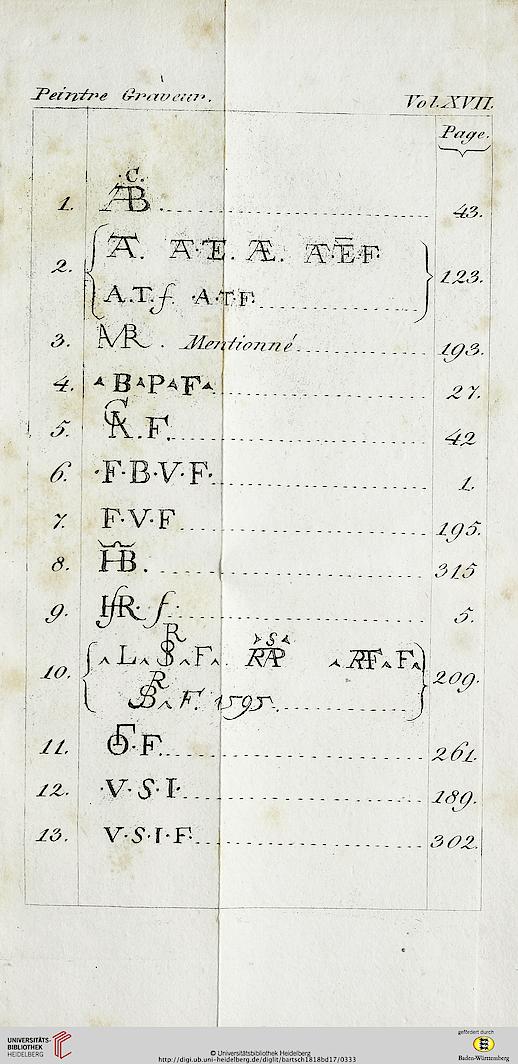 Peintre Graveur. Vol. XVII.
Page.
1. ·C. AB. 43.
2. A. A·T·E. Æ. A·E·F· 123.
A.T.f. ·A·T·F·
3. MR. Mentionné 193.
4. B P F 27.
5. F. 42
6. ·F·B·V·F· 1.
7. F·V·F 195.
8. HB. 315
9. HR· f. 5.
10. L F RAP S RF F 209.
R B F. 1595.
11. F. 261.
12. ·V·S·I· 189.
13. V·S·I·F· 302.
UNIVERSITÄTS-
BIBLIOTHEK
HEIDELBERG
© Universitätsbibliothek Heidelberg
http://digi.ub.uni-heidelberg.de/diglit/bartsch1818bd17/0333
gefördert durch
Baden-Württemberg